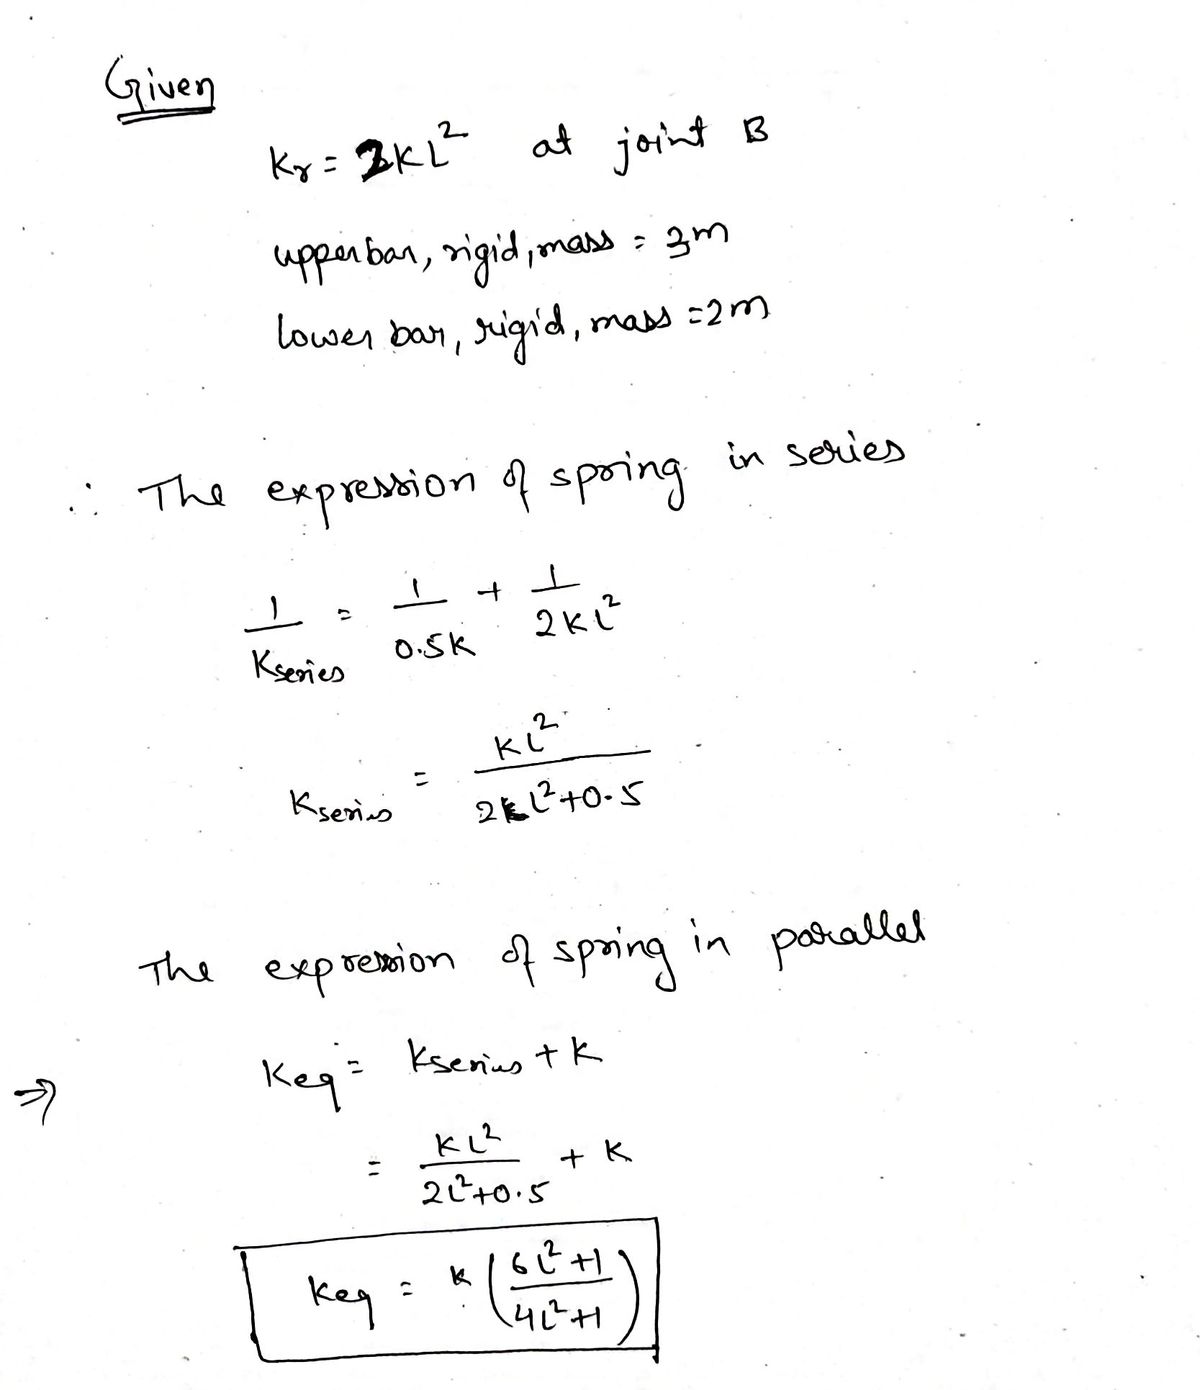 Given
Kr = 2KL² at joint B
upper bar, rigid, mass = 3m
lower bar, rigid, mass = 2m
∴ The expression of spring in series
1/Kseries = 1/0.5K + 1/2KL²
Kseries = KL²/2L²+0.5
The expression of spring in parallel
⇒ Keq = Kseries + K
= KL²/2L²+0.5 + K
Keq = K (6L²+1/4L²+1)